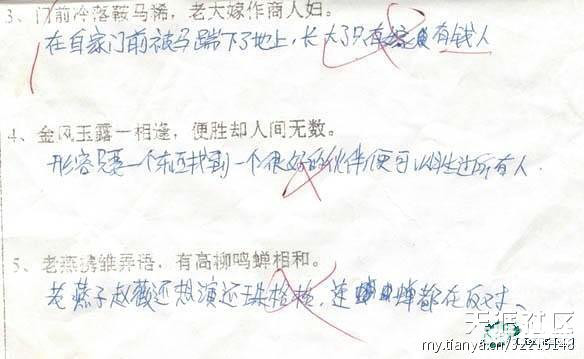 3、门前冷落鞍马稀，老大嫁作商人妇。
在自家门前被马踹下了地上，长大了只有嫁有钱人
4、金风玉露一相逢，便胜却人间无数。
形容只要一个东西找到一个很好的伙伴便可以胜过所有人.
5、老燕携雏弄语，有高柳鸣蝉相和。
老燕子赵薇还想演还珠格格，连蝉都在反对、
天涯社区
my.tianya.cn/32215148